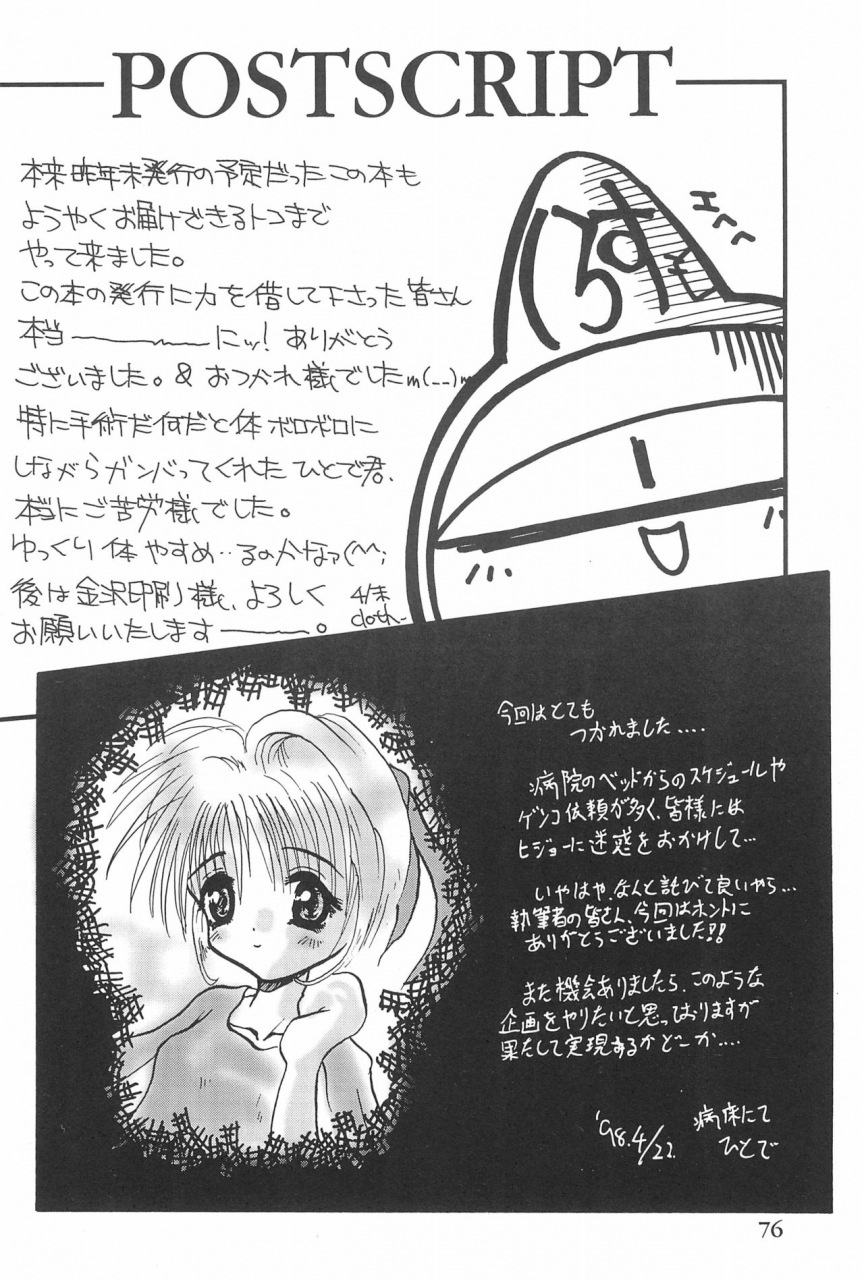 POSTSCRIPT
本来昨年末発行の予定だったこの本も
ようやくお届けできるトコまで
やって来ました。
この本の発行に力を借して下さった皆さん
本当――――にッ!ありがとう
ございました。& おつかれ様でしたm(__)m
特に手術だ何だと体ボロボロに
しながらガンバってくれたひとで君、
本当にご苦労様でした。
ゆっくり体やすめ‥るのかなァ(^^;
後は金沢印刷様、よろしく
お願いいたします――――。
4/末
cloth-
くろす
エヘヘ
今回はとても
つかれました....
病院のベッドからのスケジュールや
ゲンコ依頼が多く、皆様には
ヒジョーに迷惑をおかけして...
いやはや、なんと詫びて良いやら...
執筆者の皆さん、今回はホントに
ありがとうございました!!
また機会ありましたら、このような
企画をやりたいと思っておりますが
果たして実現するかどーか....
'98.4/22.
病床にて
ひとで
76